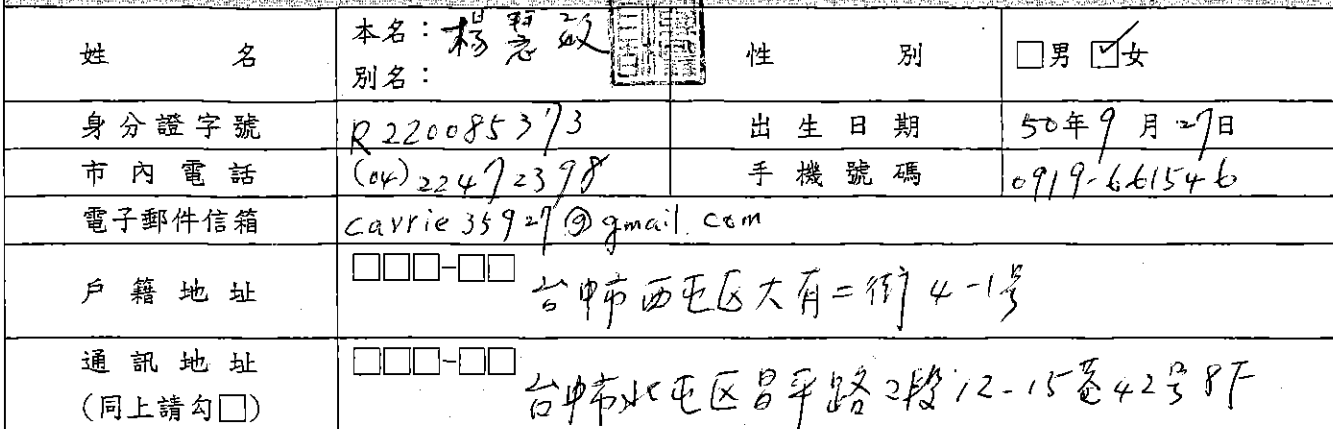 姓名 本名：楊慧敏 性別 □男 ☑女
別名：
身分證字號 R220085373 出生日期 50年9月27日
市內電話 (04)22472398 手機號碼 0919-661546
電子郵件信箱 carrie35927@gmail.com
戶籍地址 □□□-□□ 台中市西屯区大有二街4-1号
通訊地址 □□□-□□ 台中市北屯区昌平路2段12-15巷42号8F
(同上請勾□)